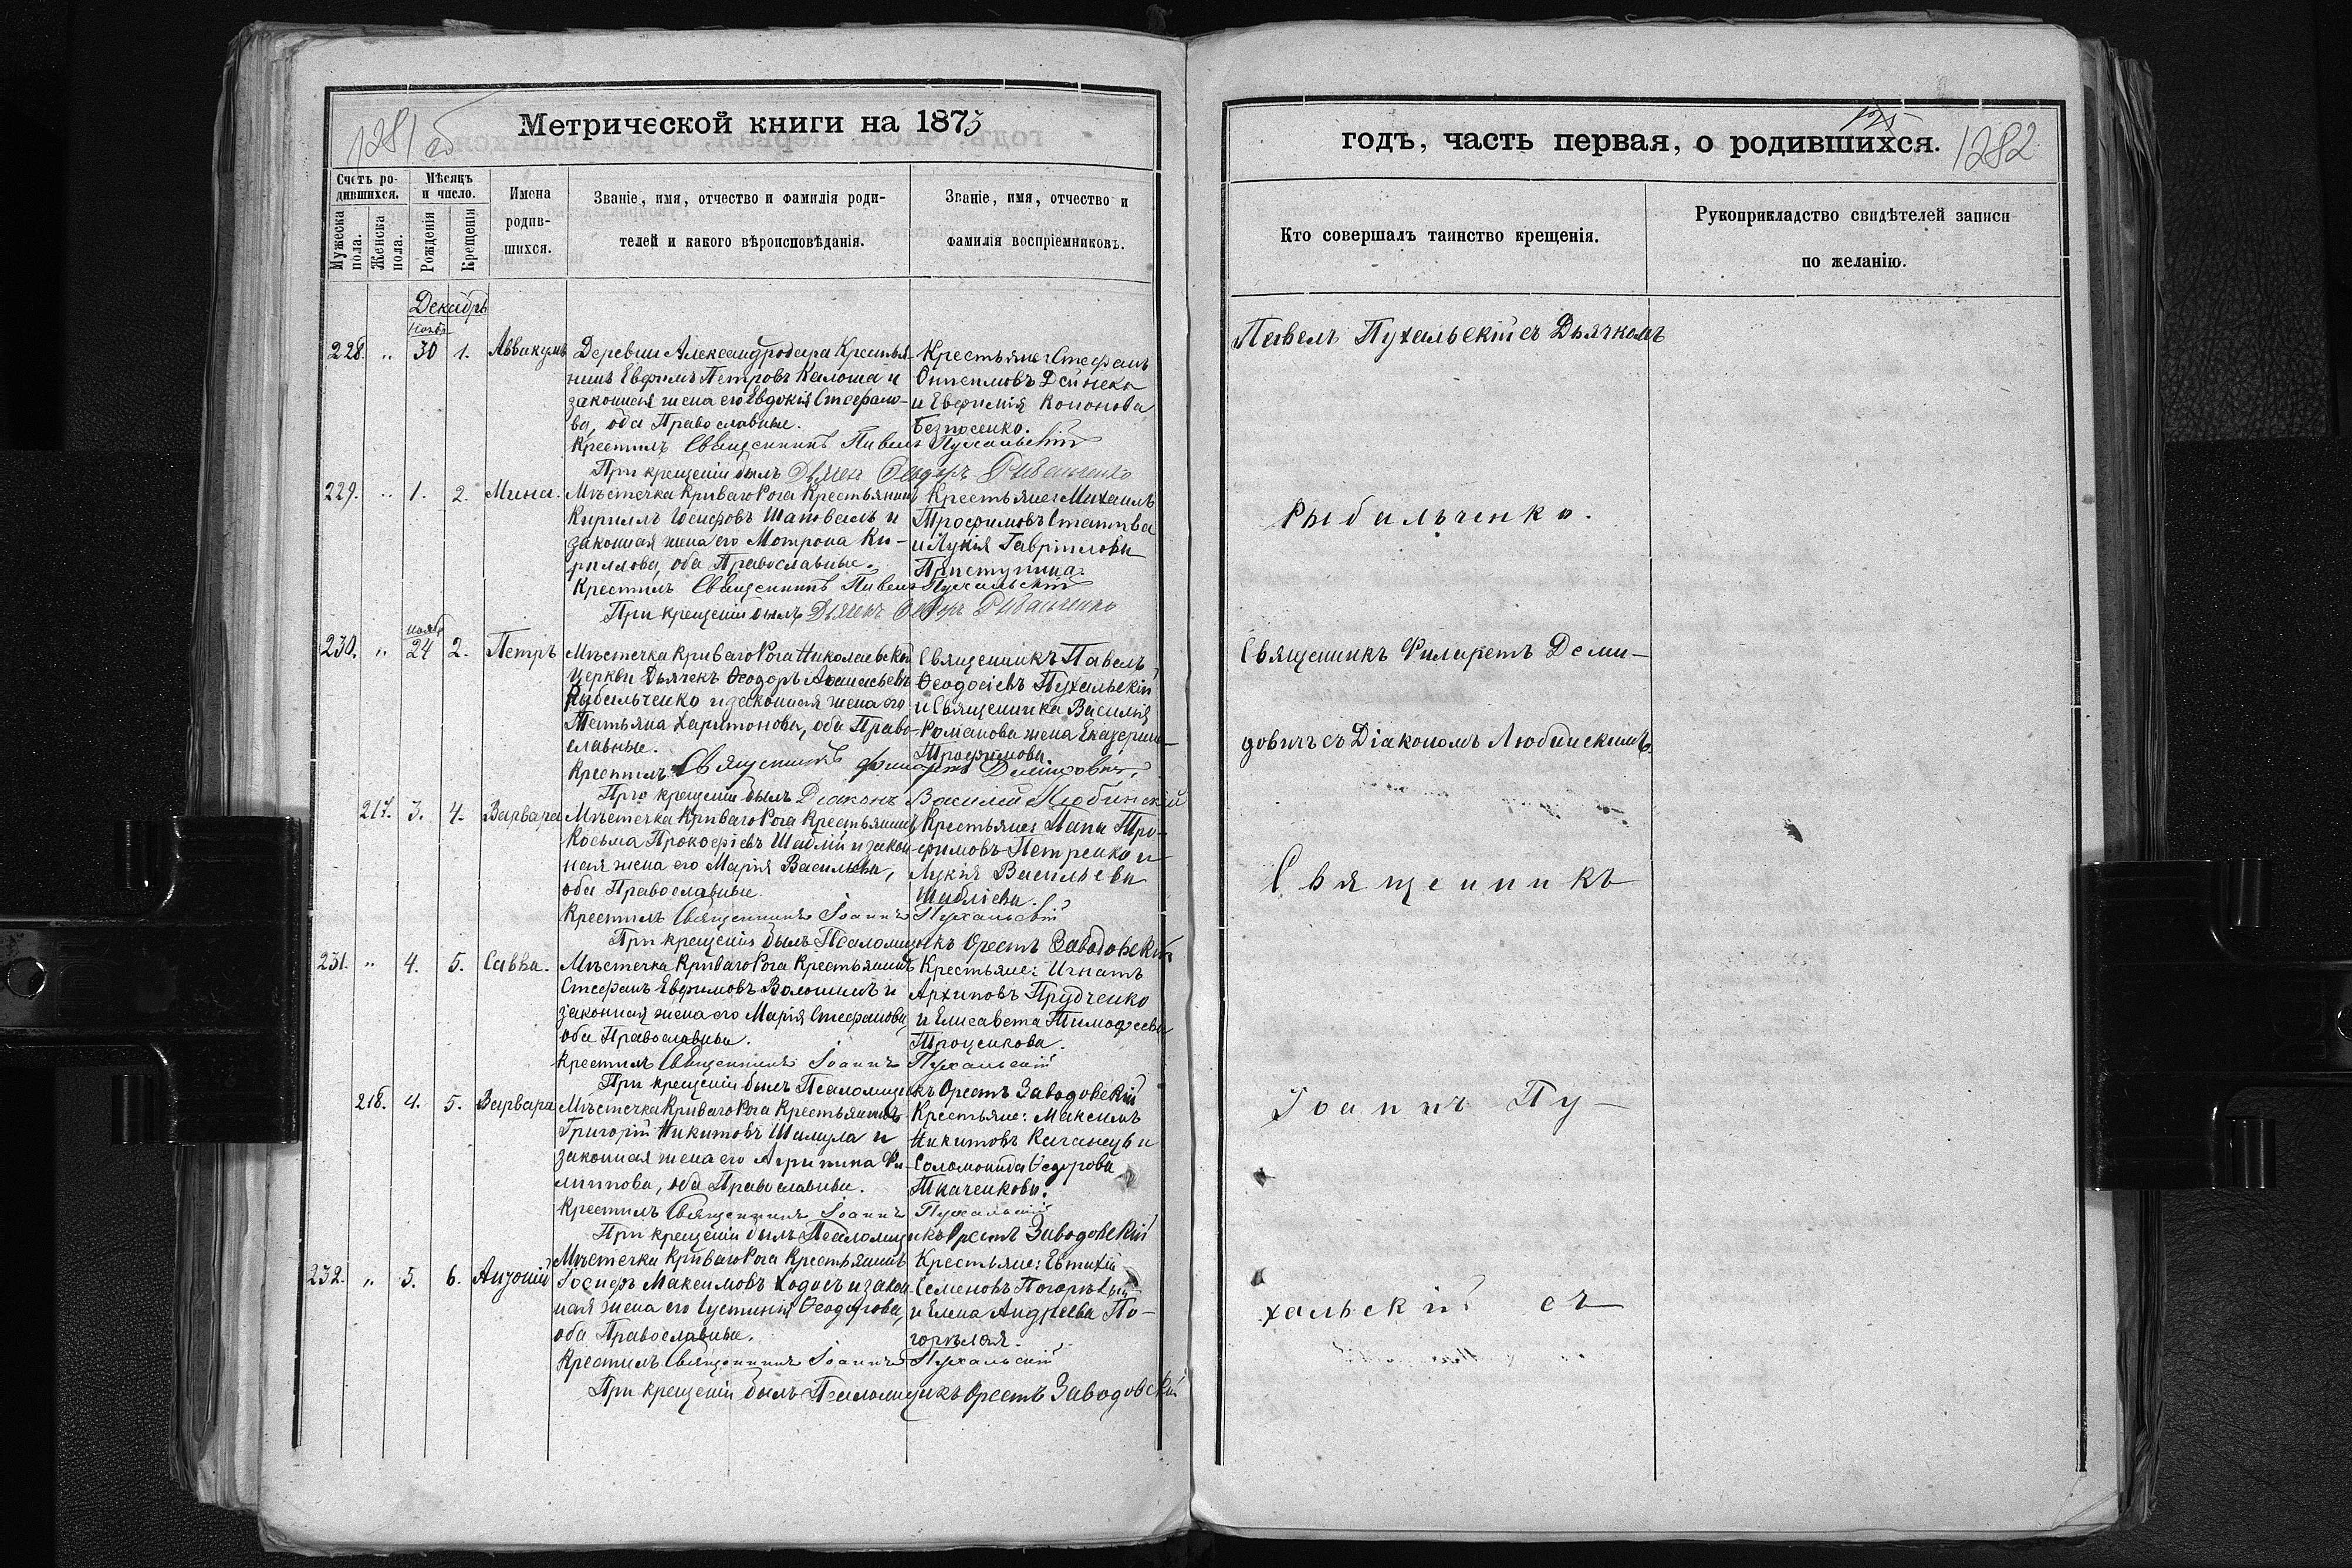 1281 об
Метрической книги на 1873
Счетъ ро-
дившихся.
Мѣсяцъ
и число.
Мужеска
пола.
Женска
пола.
Рожденія
Крещенія
Имена
родив-
шихся.
Званіе, имя, отчество и фамилія роди-
телей и какого вѣроисповѣданія.
Званіе, имя, отчество и
фамилія воспріемниковъ.
Декабрь
Нояб.
228. „ 30 1. Аввакумъ Деревни Александродара Крестья- Крестьяне: Стефанъ
нинъ Евфимъ Петровъ Калоша и Онисимовъ Дейнека
законная жена его Евдокія Стефано- и Евфимія Кононова
ва, оба Православные. Безносенко.
Крестилъ Священникъ Павелъ Пухальскій
При крещеніи былъ Дьячекъ Ѳеодоръ Рыбальченко
229. „ 1. 2. Мина. Мѣстечка Криваго Рога Крестьянинъ Крестьяне: Михаилъ
Кириллъ Іосифовъ Шаповалъ и Трофимовъ
законная жена его Мотрона Ки- и Лукія Гавріилова
риллова, оба Православные. Приступина.
Крестилъ Священникъ Павелъ Пухальскій
При крещеніи былъ Дьячекъ Ѳеодоръ Рыбальченко
нояб
230. „ 24 2. Петръ Мѣстечка Криваго Рога Николаевской Священникъ Павелъ
церкви Дьячекъ Ѳеодоръ Аѳанасьевъ Ѳеодосіевъ Пухальскій
Рыбальченко и законная жена его и Священника Василія
Татьяна Харитонова, оба Право- Романова жена Екатерина
славные. Трофимова.
Крестилъ Священникъ Филаретъ Демидовичъ
При крещеніи былъ Діаконъ Василій Любинскій
217. 3. 4. Варвара Мѣстечка Криваго Рога Крестьянинъ Крестьяне: Тро-
Косьма Прокофіевъ Шаблій и закон- фимовъ Петренко и
ная жена его Марія Васильева, Лукія Васильева
оба Православные. Шабліева.
Крестилъ Священникъ Іоаннъ Пухальскій
При крещеніи былъ Псаломщикъ Орестъ Заводовскій
231. „ 4. 5. Савва. Мѣстечка Криваго Рога Крестьянинъ Крестьяне: Игнатъ
Стефанъ Евфимовъ Волошинъ и Архиповъ Прудченко
законная жена его Марія Стефанова, и Елисавета Тимофеева
оба Православны. Троценкова.
Крестилъ Священникъ Іоаннъ Пухальскій
При крещеніи былъ Псаломщикъ Орестъ Заводовскій
218. 4. 5. Варвара Мѣстечка Криваго Рога Крестьянинъ Крестьяне: Максимъ
Григорій Никитовъ Шамула и Никитовъ Каганецъ и
законная жена его Агрипина Фи- Соломонида Ѳедорова
липпова, оба Православны. Ткаченкова.
Крестилъ Священникъ Іоаннъ Пухальскій
При крещеніи былъ Псаломщикъ Орестъ Заводовскій
232. „ 5. 6. Анѳоній Мѣстечка Криваго Рога Крестьянинъ Крестьяне: Евтихій
Іосифъ Максимовъ Ходосъ и закон- Семеновъ Погорѣлый
ная жена его Іустинія Ѳеодорова, и Елена Андреева По-
оба Православны. горѣлая.
Крестилъ Священникъ Іоаннъ Пухальскій
При крещеніи былъ Псаломщикъ Орестъ Заводовскій
годъ, часть первая, о родившихся.
1282
Кто совершалъ таинство крещенія.
Рукоприкладство свидѣтелей записи
по желанію.
Павелъ Пухальскій съ Дьячкомъ
Рыбальченко.
Священникъ Филаретъ Деми-
довичъ съ Діакономъ Любинскимъ.
Священникъ
Іоаннъ Пу-
хальскій съ